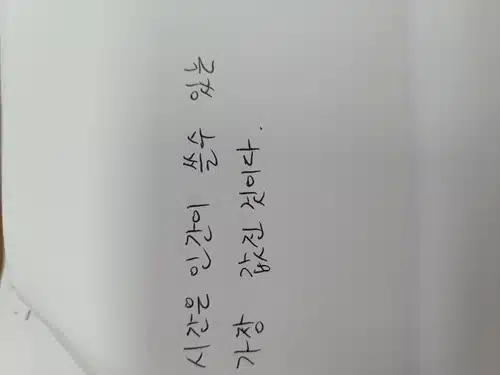 시간은 인간이 쓸수 있는
가장 값진 것이다.